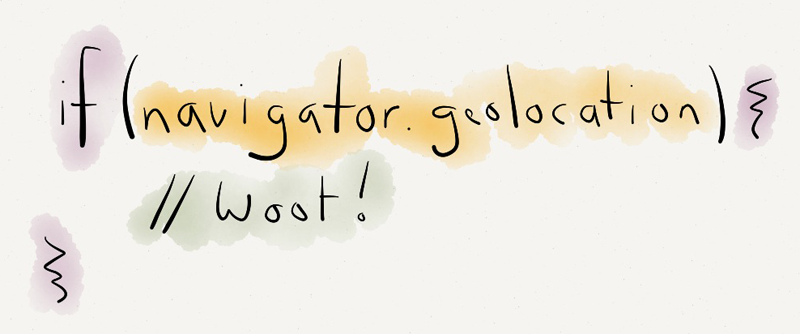 if (navigator.geolocation) {
// Woot!
}